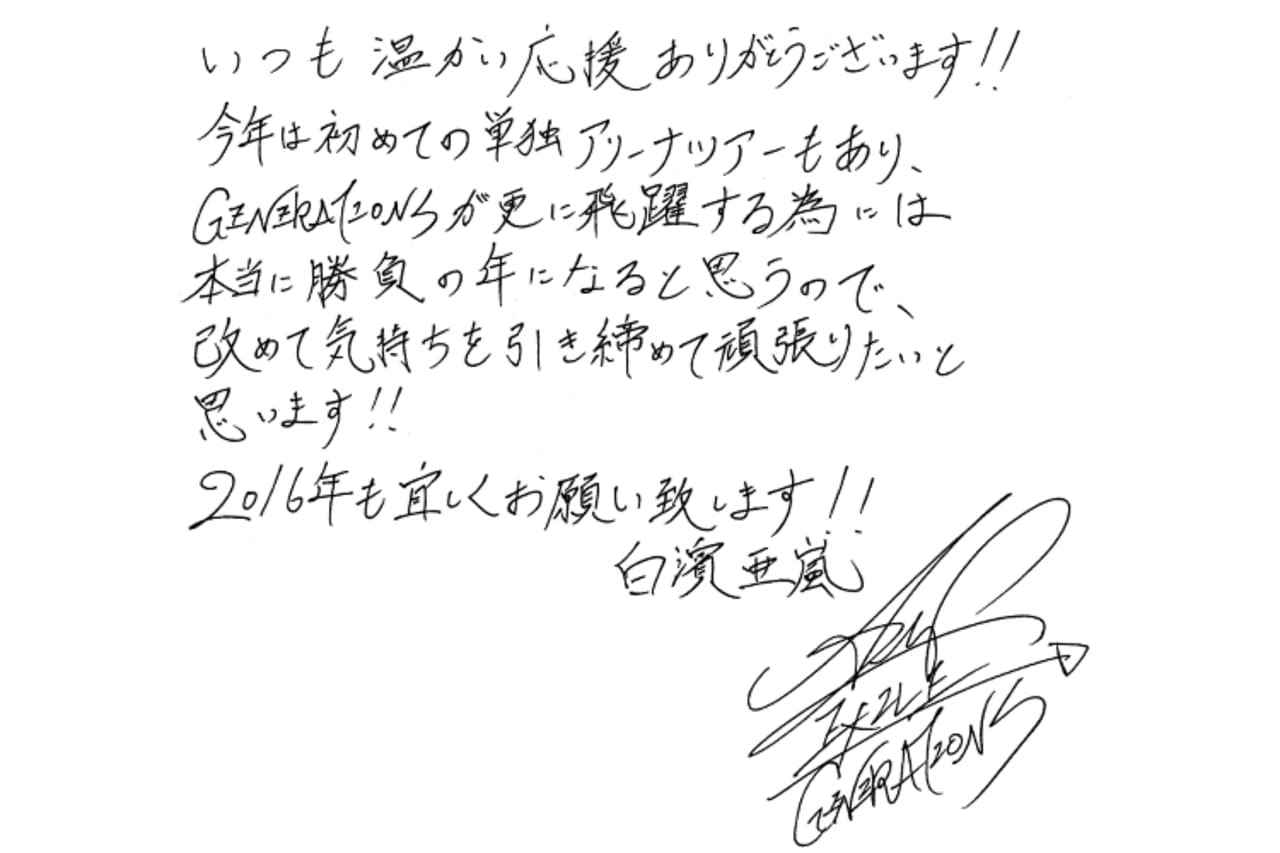 いつも温かい応援ありがとうございます!!
今年は初めての単独アリーナツアーもあり、
GENERATIONSが更に飛躍する為には
本当に勝負の年になると思うので、
改めて気持ちを引き締めて頑張りたいと
思います!!
2016年も宜しくお願い致します!!
白濱亜嵐
EXILE
GENERATIONS